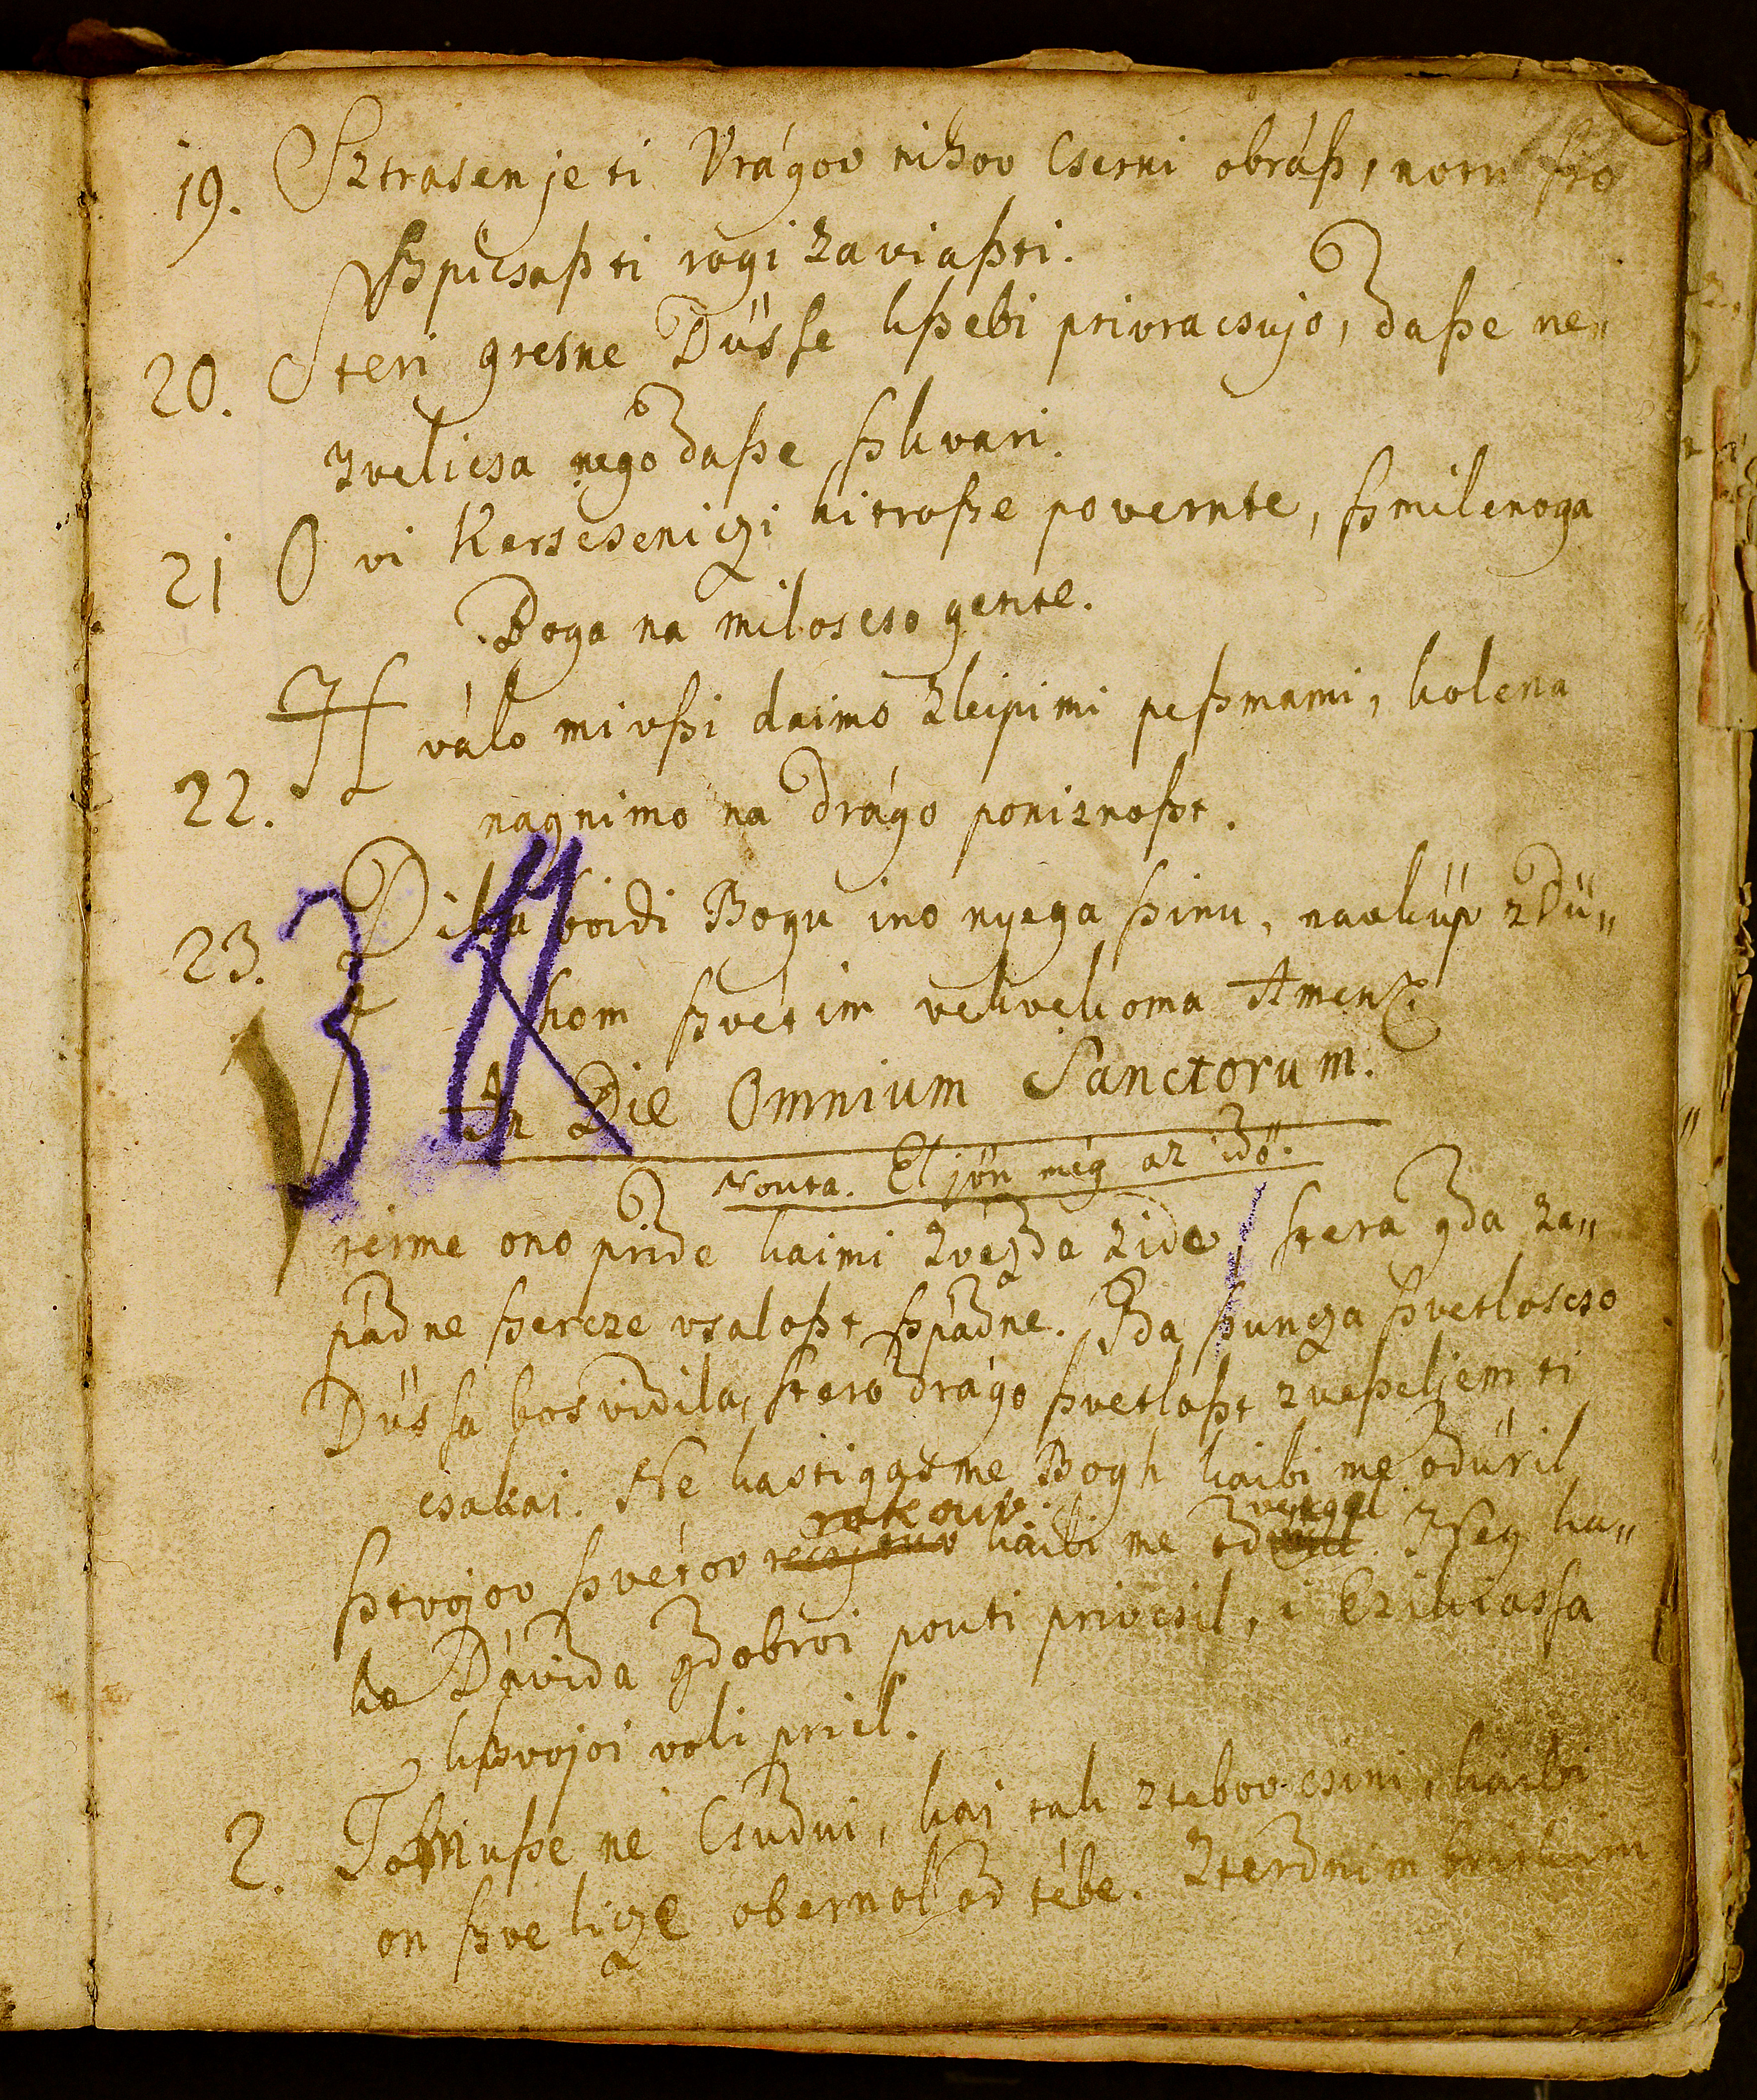 19. Sztrasen je ti Vrágov nihov Cserni obráß, norn
ßpicsaßti rogi zaviaßti.
20. Steri gresne Düsse kßebi privracsujo, daße ne„
zvelicsa nego daße ßkvari.
21 O vi Kerscseniczi hitroße povernte, ßmilenoga
Boga na miloscso genite.
Hválo mi vßi daimo zleipimi peßmami, kolena
22. nagnimo na drágo poniznoßt.
23. Dika boidi Bogu ino nyega ßinu, navküp z Dü„
hom ßvétim vekvekoma Amen
3
In Die Omnium Sanctorum.
Nouta. El jön még az idö.
reime ono pride kaimi zvezda zide, stera gda za„
pádne ßercze vsaloßt ßpádne. Gda ßuncza ßvetloscso
Düssa bos vidila, stero drágo ßvetloßt zveßeljem ti
csakai. Ne kastigazme Bogh kaibi me odüril
rok ouv. vergel
ßtvojov ßvétov kaibi me od. Iseg ka„
ko Dávida gdobroi pouti privesil, i Ezikiassa
kßvojoi voli priel.
2. Tomuße ne Csudui, kai tak ztebov csini, kaibi
on ßve licze obernol od tébe. Zterdnim